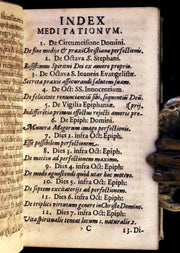 INDEX
MEDITATIONUM.
1. De Circumcisione Domini.
De fine medio & praxi Christianæ perfectionis.
2. De Octava S. Stephani.
Resistimus Spiritui Dei ex amore proprio.
3. De Octava S. Ioannis Evangelistæ.
Secreta praxis assecurandi salutem suam.
4. De Oct: SS. Innocentium.
De felicitate
5. De Vigilia Epiphaniæ.
Indifferentia primus effectus rejecti amoris pro-
6. De Epiph: Domini.
Munera Magorum imago perfectionis.
7. Dies 1. infra Oct: Epiph:
Esse possibilem perfectionem.
8. Dies 2. infra Oct: Epiph:
De motivo ad perfectionem maximo.
9. Dies 3. infra Oct: Epiph:
De modo agnoscendi quid ut hoc motivo.
10. Dies 4. infra Oct: Epiph:
De septem excitatoriis ad perfectionem.
11. Dies 5. infra Oct: Epiph:
De triplici virtutum genere in Christo Domino.
12. Dies 6. infra Oct: Epiph:
Vita spiritualis tota lucens i. naturalis 2.
C
13. Di-